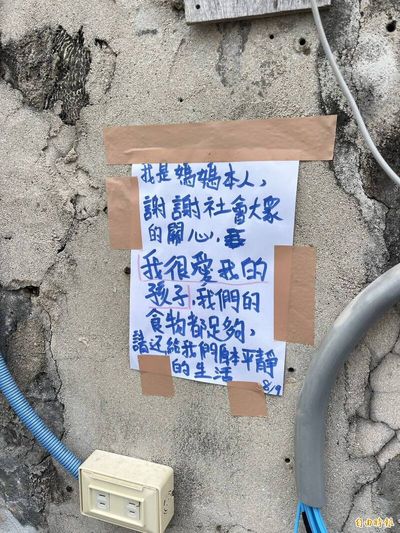 我是媽媽本人，
謝謝社會大眾
的關心，
我很愛我的
孩子，我們的
食物都足夠，
請還給我們原本平靜
的生活
8/9
自由時報